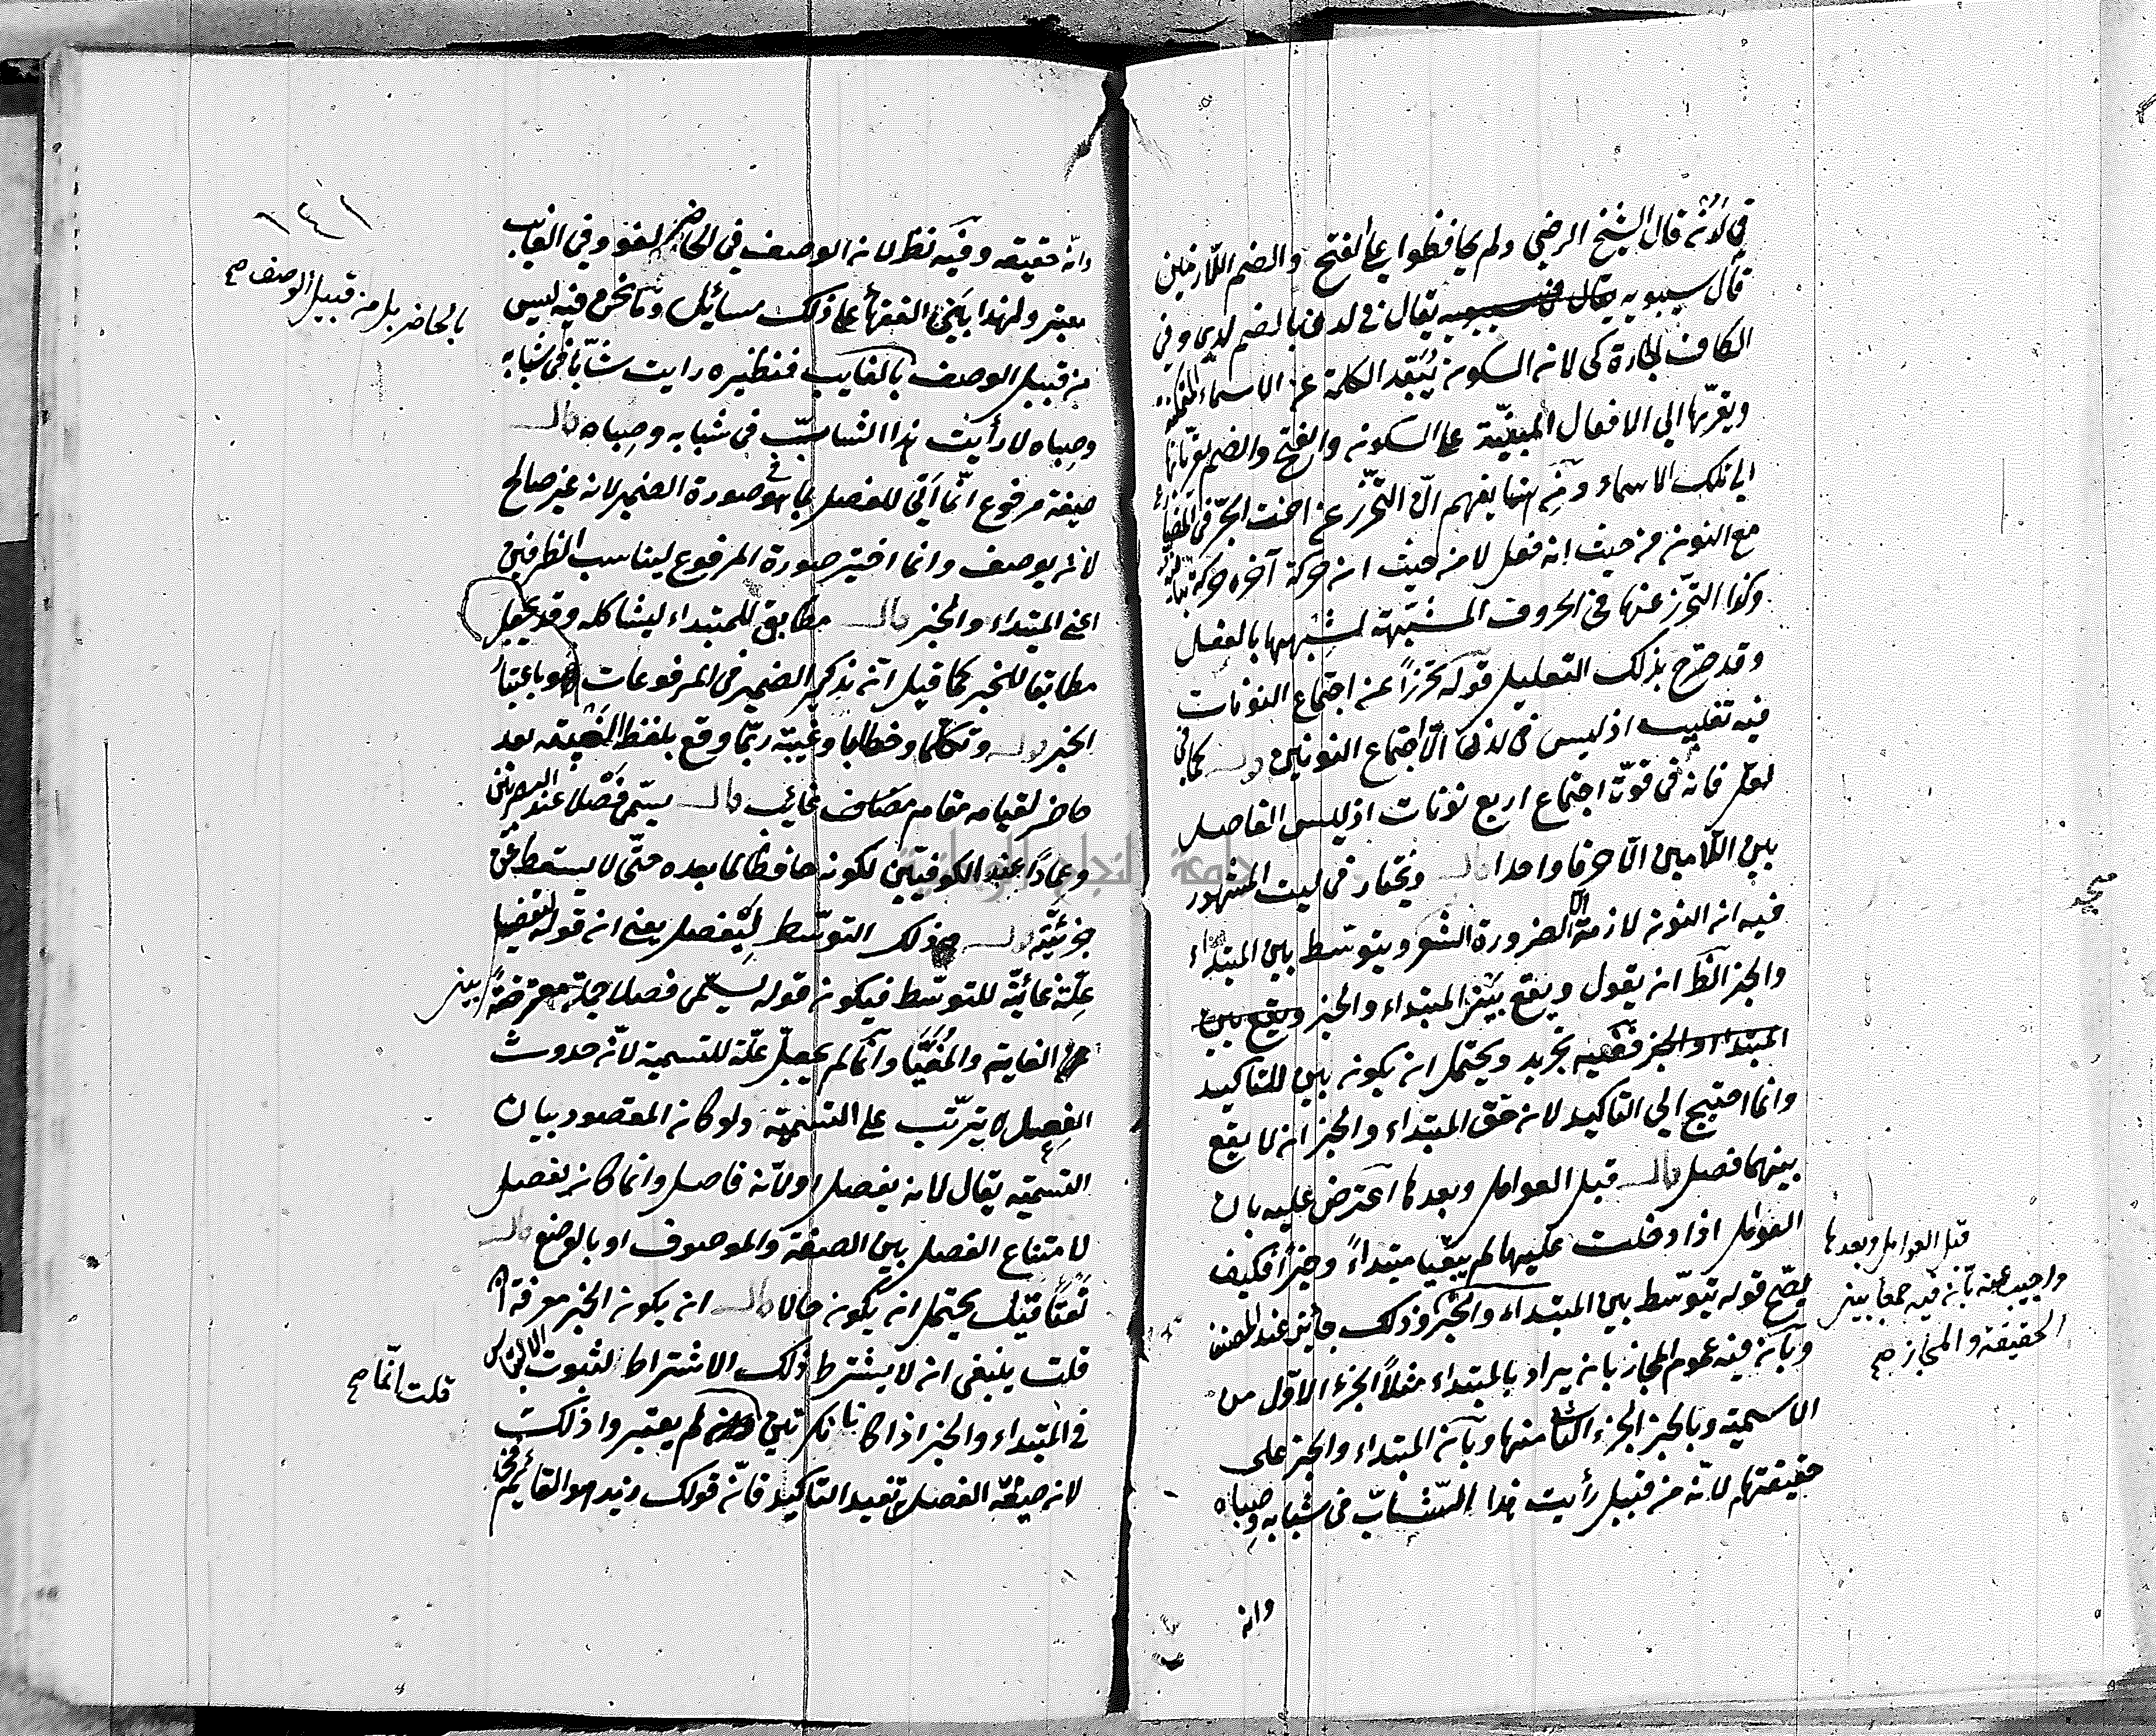 في لأنه قال الشيخ الرضي ولم يحافظوا على الفتح والضم اللازمين
قال سيبويه يقال في لدن بالضم لدني وفي
الكاف الجارة كي لان السكون يبعد الكلمة عن الاسماء المتمكنة
ويقربها الى الافعال المبنية على السكون والفتح والضم يقربانها
الى تلك الاسماء ومن هنا يفهم ان التحرز عن اخت الجر في المضارع
مع النون من حيث انه فعل لا من حيث ان حركة آخره حركة
وكذا التحرز عنها في الحروف المشبهة لشبهها بالفعل
وقد صرح بذلك التعليل قوله تحرزا عن اجتماع النونات
فيه تغليب اذ ليس في لدن الا اجتماع النونين قوله كما في
لعل فانه في قوة اجتماع اربع نونات اذ ليس الفاصل
بين اللامين الا حرفا واحدا قال ويختار في ليت المشهور
فيه ان النون لازمة الا لضرورة الشعر ويتوسط بين المبتداء
والخبر الظ ان يقول ويقع بين المبتداء والخبر ويقع بين
المبتداء والخبر ففيه تجريد ويحتمل ان يكون بين للتاكيد
وانما احتيج الى التاكيد لان حق المبتداء والخبر ان لا يقع
بينهما فصل قال قبل العوامل وبعدها اعترض عليه بان
العوامل اذا دخلت عليهما لم يبقيا مبتداءً وخبرا فكيف
يصح قوله يتوسط بين المبتداء والخبر وذلك جائز عند المصنف
وبانه فيه عموم المجاز بان يراد بالمبتداء مثلاً الجزء الاول من
الاسمية وبالخبر الجزء الثا منها وبان المبتداء والخبر على
حقيقتهما لانه من قبيل رأيت هذا الشابّ في شبابه وصباه
وانه
قبل العوامل وبعدها
واجيب عنه بان فيه جمعا بين
الحقيقة والمجاز صح
وانه حقيقه وفيه نظر لان الوصف في الحاضر لغو وفي الغائب
معتبر ولهذا يبني الفقهاء على ذلك مسائل وما نحن فيه ليس
من قبيل الوصف بالغايب فنظيره رايت شابّا في شبابه
وصباه لا رأيت هذا الشابّ في شبابه وصباه قال
صيغة مرفوع انما اتي للفصل بما هو في صورة الضمير لانه غير صالح
لان يوصف وانما اختير صورة المرفوع ليناسب الطرفين
اعني المبتداء والخبر قال مطابق للمبتداء ليشاكله وقد يجعل
مطابقا للخبر كما قيل ان تذكير الضمير في المرفوعات هو باعتبار
الخبر قوله وتكلما وخطابا وغيبة ربما وقع بلفظ الغيبة بعد
حاضر لقيامه مقام مضاف غائب قال يسمى فصلا عند البصريين
وعمادًا عند الكوفيين لكونه حافظا لما بعده حتّى لا يسقط عن
جزئيته قوله وذلك التوسّط ليفصل يعني ان قوله ليفصل
علّة غائيّة للتوسّط فيكون قوله يسمى فصلا جملة معترضة بين
الغاية والمغيّا وانما لم يجعل علّة للتسمية لانّ حدوث
الفصل لا يترتّب على التسمية ولو كان المقصود بيان
التسمية يقال لانه يفصل او لانّه فاصل وانما كان يفصل
لامتناع الفصل بين الصفة والموصوف او بالوضع قال
نعتًا قيل يحتمل ان يكون حالا قال ان يكون الخبر معرفة
قلت ينبغي ان لا يشترط ذلك الاشتراط لثبوت الالتباس
في المبتداء والخبر اذا كانا نكرتين لم يعتبروا ذلك
لان صيغة الفصل تفيد التاكيد فانّ قولك زيد هو القائم
بالحاضر بل من قبيل الوصف صح
قلت انّما صح